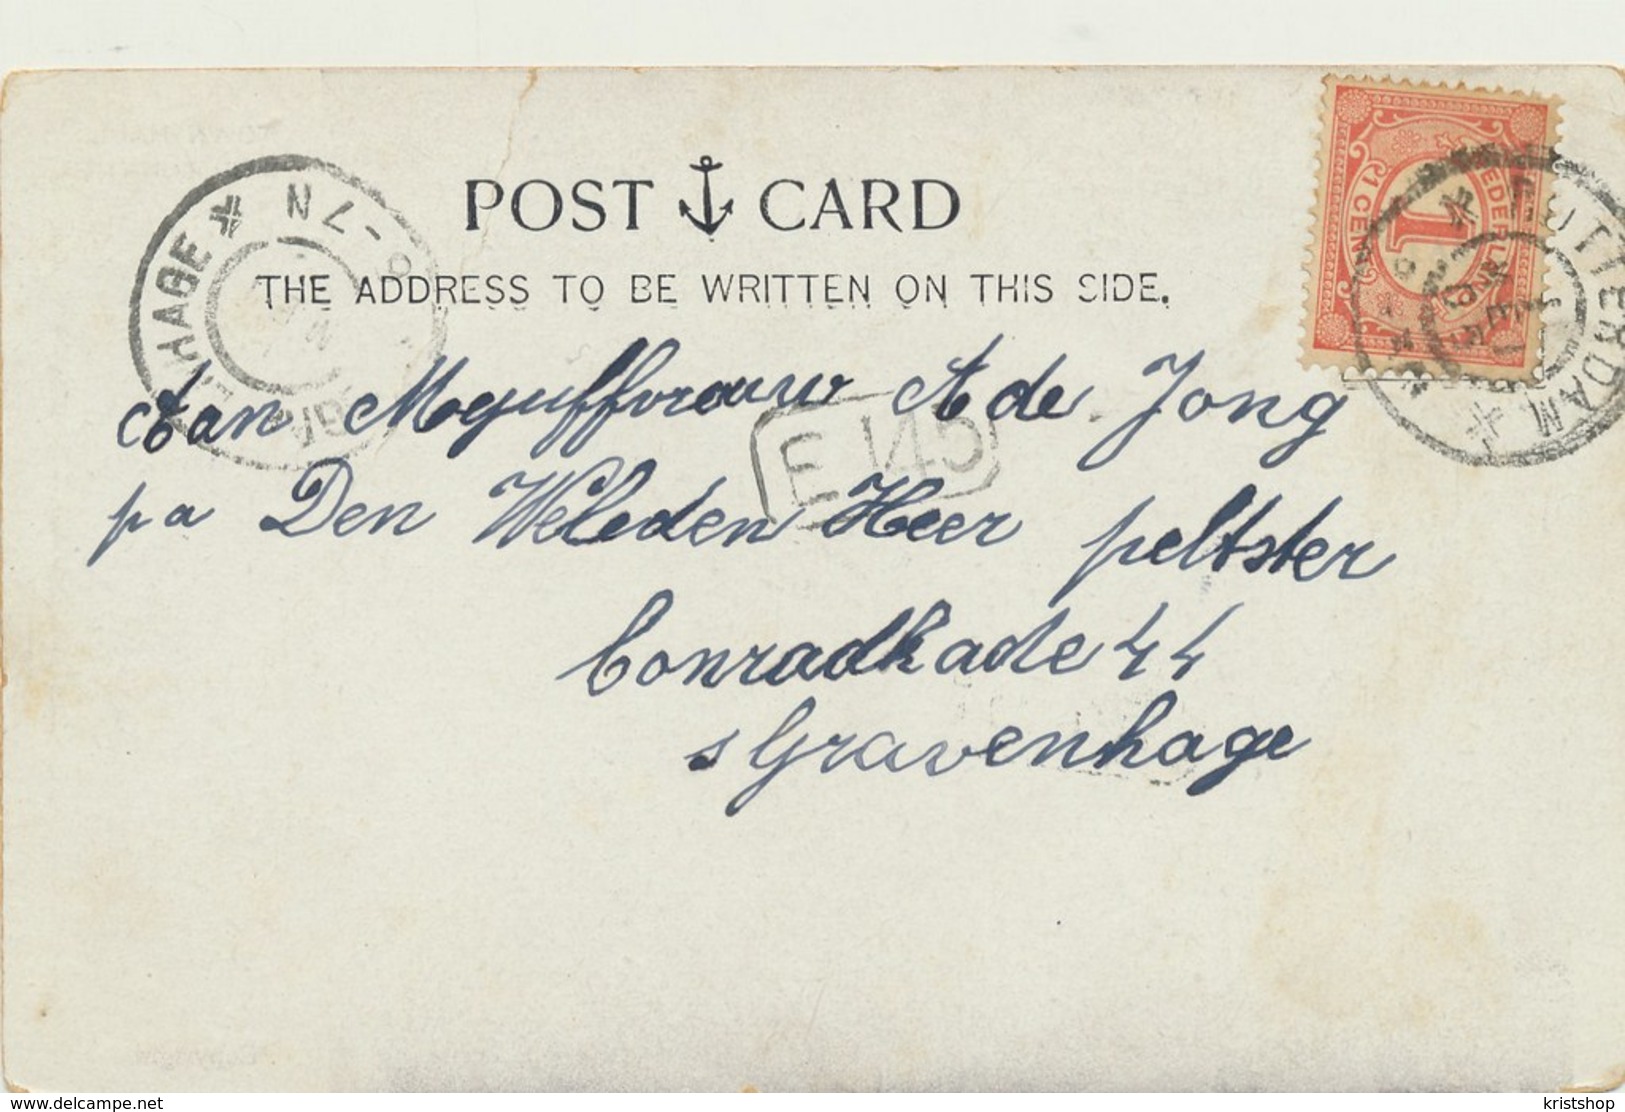 POST CARD
THE ADDRESS TO BE WRITTEN ON THIS SIDE.
NEDERLAND
1 CENT
1
ROTTERDAM
HAGE
E 145
Aan Mejuffvrouw A de Jong
pa Den Weleden Heer peltster
Conradkade 44
s Gravenhage
www.delcampe.net
kristshop